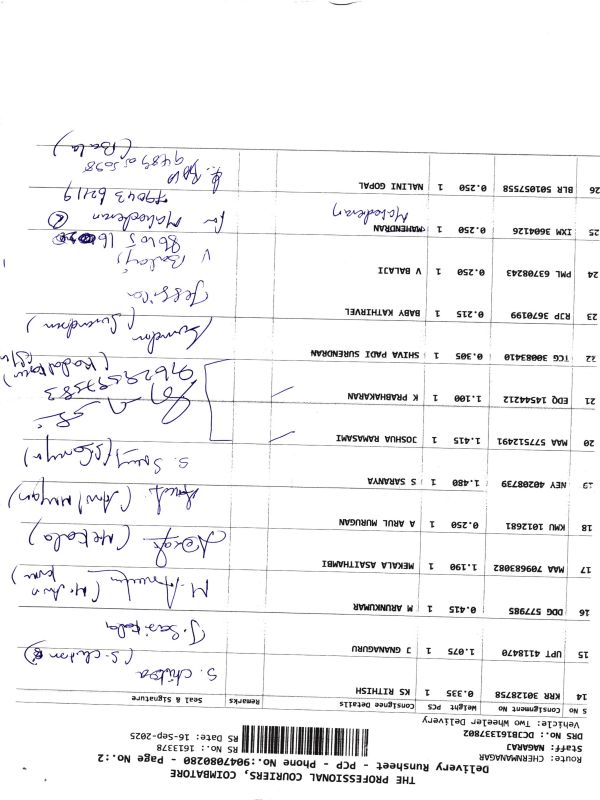 THE PROFESSIONAL COURIERS, COIMBATORE
Delivery Runsheet - PCP - Phone No.:9047080280 - Page No.:2
Route: CHERNMANAGAR
Staff: NAGARAJ RS No.: 1613378
DRS No.: DCJB161337802 RS Date: 16-Sep-2025
Vehicle: Two Wheeler Delivery
S NO Consignment No Weight PCS Consignee Details Remarks Seal & Signature
14 KRR 30128758 0.335 1 KS RITHISH S. Chitra
15 UPT 4118470 1.075 1 J GNANAGURU J. Sasikala
16 DDG 577985 0.415 1 M ARUNKUMAR
17 MAA 709683082 1.190 1 MEKALA ASAITHAMBI (Mekala)
18 KMU 1012681 0.250 1 A ARUL MURUGAN (Arul Murugan)
19 NEY 40208739 1.480 1 S SARANYA
20 MAA 577512491 1.415 1 JOSHUA RAMASAMI
21 EDQ 1544212 1.100 1 K PRABHAKARAN
22 TCG 30083410 0.305 1 SHIVA PADI SURENDRAN (Surendran)
23 RJP 3670199 0.215 1 BABY KATHIRVEL Jessica
24 PML 63708243 0.250 1 V BALAJI V Balaji
25 IXM 3604126 0.250 1 MAHENDRAN
79043 62119
26 BLR 501057558 0.250 1 NALINI GOPAL
(Bala)